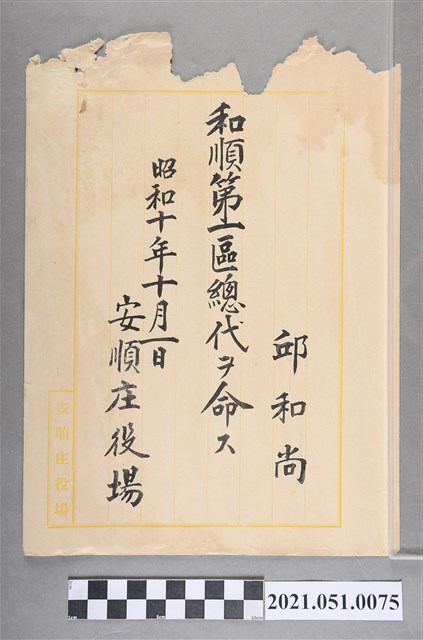 邱和尚
和順第一區總代ヲ命ス
昭和十年十月一日
安順庄役場
安順庄役場
2021.051.0075